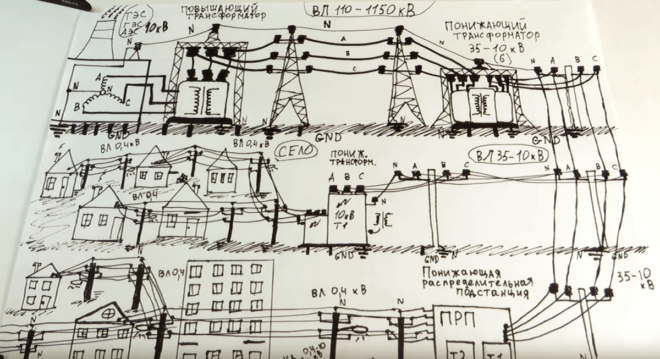 ТЭС
ГЭС
АЭС
10кВ
ПОВЫШАЮЩИЙ
ТРАНСФОРМАТОР
N
ВЛ 110-1150кВ
N
ПОНИЖАЮЩИЙ
ТРАНСФОРМАТОР
35-10кВ
(6)
A
B
C
N
A
B
C
A
N
B
C
N
N
GND
GND
GND
ВЛ 0,4кВ
ВЛ 0,4кВ
СЕЛО
ПОНИЖ.
ТРАНСФОРМ.
ВЛ 35-10кВ
A B C
N
N
A
B
C
N
A
B
C
ВЛ 0,4
10кВ
Т1
GND
GND
GND
ВЛ 0,4
ВЛ 0,4 кВ
N
N
Понижающая
распределительная
подстанция
35-10
кВ
ПРП
Т2
Т1